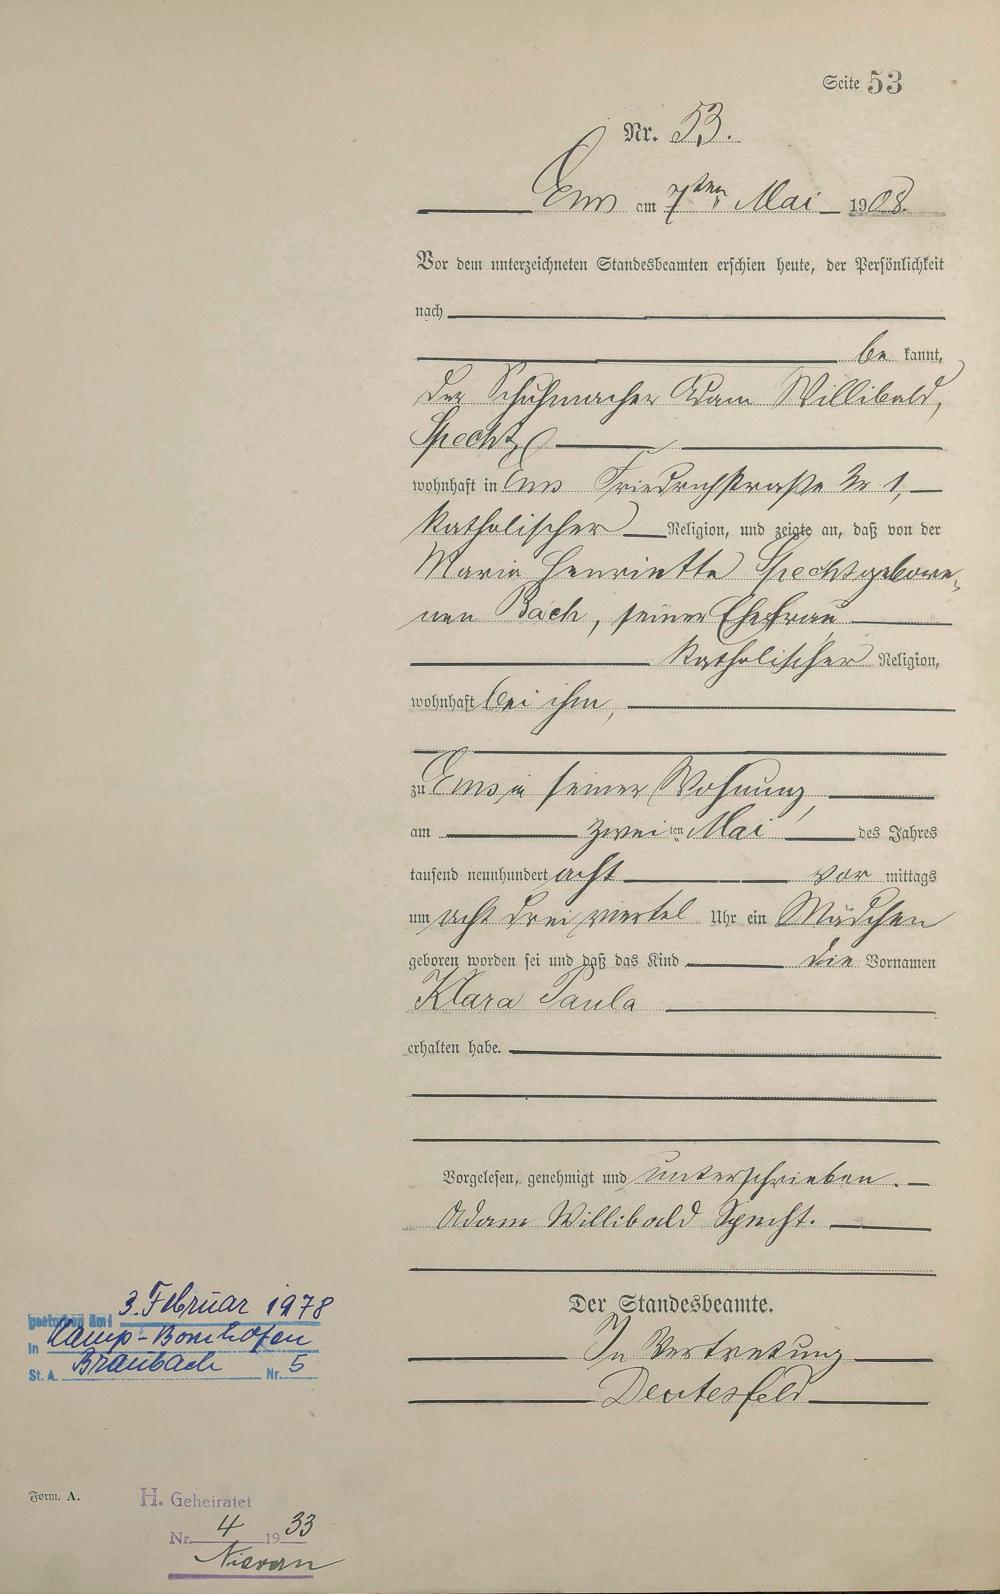 Seite 53
Nr. 53.
Ems am 7ten Mai 1908.
Vor dem unterzeichneten Standesbeamten erschien heute, der Persönlichkeit
nach
be kannt,
der Schuhmacher Adam Willibald,
Specht,
wohnhaft in Ems Friedrichstraße Nr 1,
katholischer Religion, und zeigte an, daß von der
Maria Henriette Specht gebore-
nen Bach, seiner Ehefrau
katholischer Religion,
wohnhaft bei ihm,
zu Ems in seiner Wohnung,
am zwei ten Mai des Jahres
tausend neunhundert acht vor mittags
um acht drei viertel Uhr ein Mädchen
geboren worden sei und daß das Kind die Vornamen
Klara Paula
erhalten habe.
Vorgelesen, genehmigt und unterschrieben.
Adam Willibald Specht.
Der Standesbeamte.
In Vertretung
gestorben am: 3. Februar 1978
in Kamp-Bornhofen
St. A. Braubach Nr. 5
Form. A.
H. Geheiratet
Nr. 4 1933
Nievern